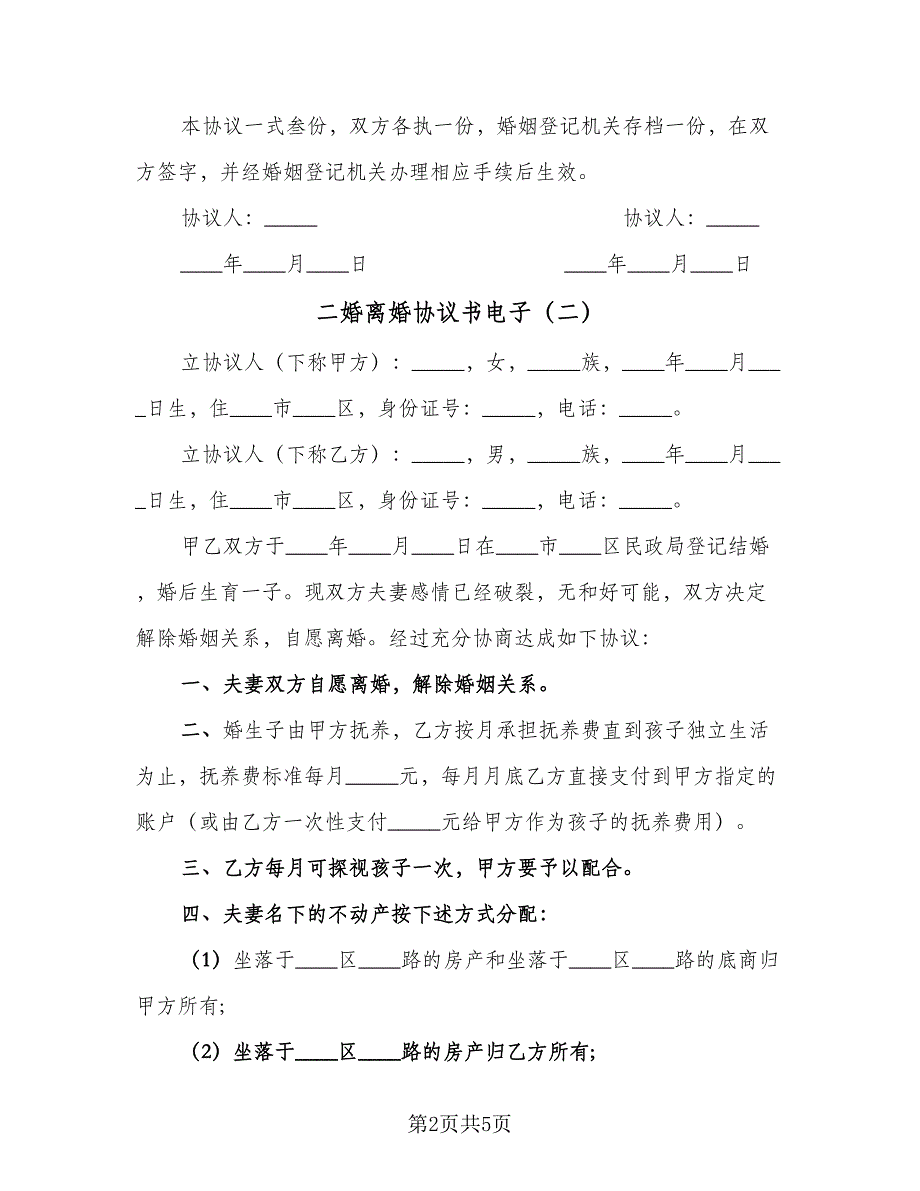 本协议一式叁份，双方各执一份，婚姻登记机关存档一份，在双
方签字，并经婚姻登记机关办理相应手续后生效。
协议人：_____ 协议人：_____
____年____月____日 ____年____月____日
二婚离婚协议书电子（二）
立协议人（下称甲方）：_____，女，_____族，____年____月___
_日生，住____市____区，身份证号：_____，电话：_____。
立协议人（下称乙方）：_____，男，_____族，____年____月___
_日生，住____市____区，身份证号：_____，电话：_____。
甲乙双方于____年____月____日在____市____区民政局登记结婚
，婚后生育一子。现双方夫妻感情已经破裂，无和好可能，双方决定
解除婚姻关系，自愿离婚。经过充分协商达成如下协议：
一、夫妻双方自愿离婚，解除婚姻关系。
二、婚生子由甲方抚养，乙方按月承担抚养费直到孩子独立生活
为止，抚养费标准每月_____元，每月月底乙方直接支付到甲方指定的
账户（或由乙方一次性支付_____元给甲方作为孩子的抚养费用）。
三、乙方每月可探视孩子一次，甲方要予以配合。
四、夫妻名下的不动产按下述方式分配：
（1）坐落于____区____路的房产和坐落于____区____路的底商归
甲方所有;
（2）坐落于____区____路的房产归乙方所有;
第2页共5页